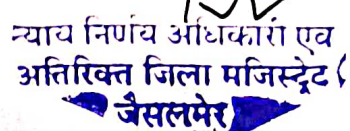 न्याय निर्णय अधिकारी एवं
अतिरिक्त जिला मजिस्ट्रेट (
जैसलमेर